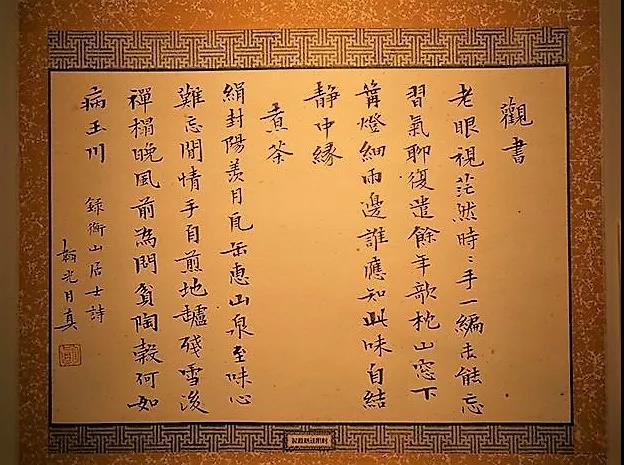 觀書
老眼視茫然時〻手一編未能忘
習氣聊復遣餘年欹枕山窓下
篝燈細雨邊誰應知此味自結
静中縁
煮茶
絹封陽羨月瓦缶惠山泉至味心
難忘閒情手自煎地罏殘雪後
禪榻晚風前為問貧陶穀何如
病玉川 録衡山居士詩